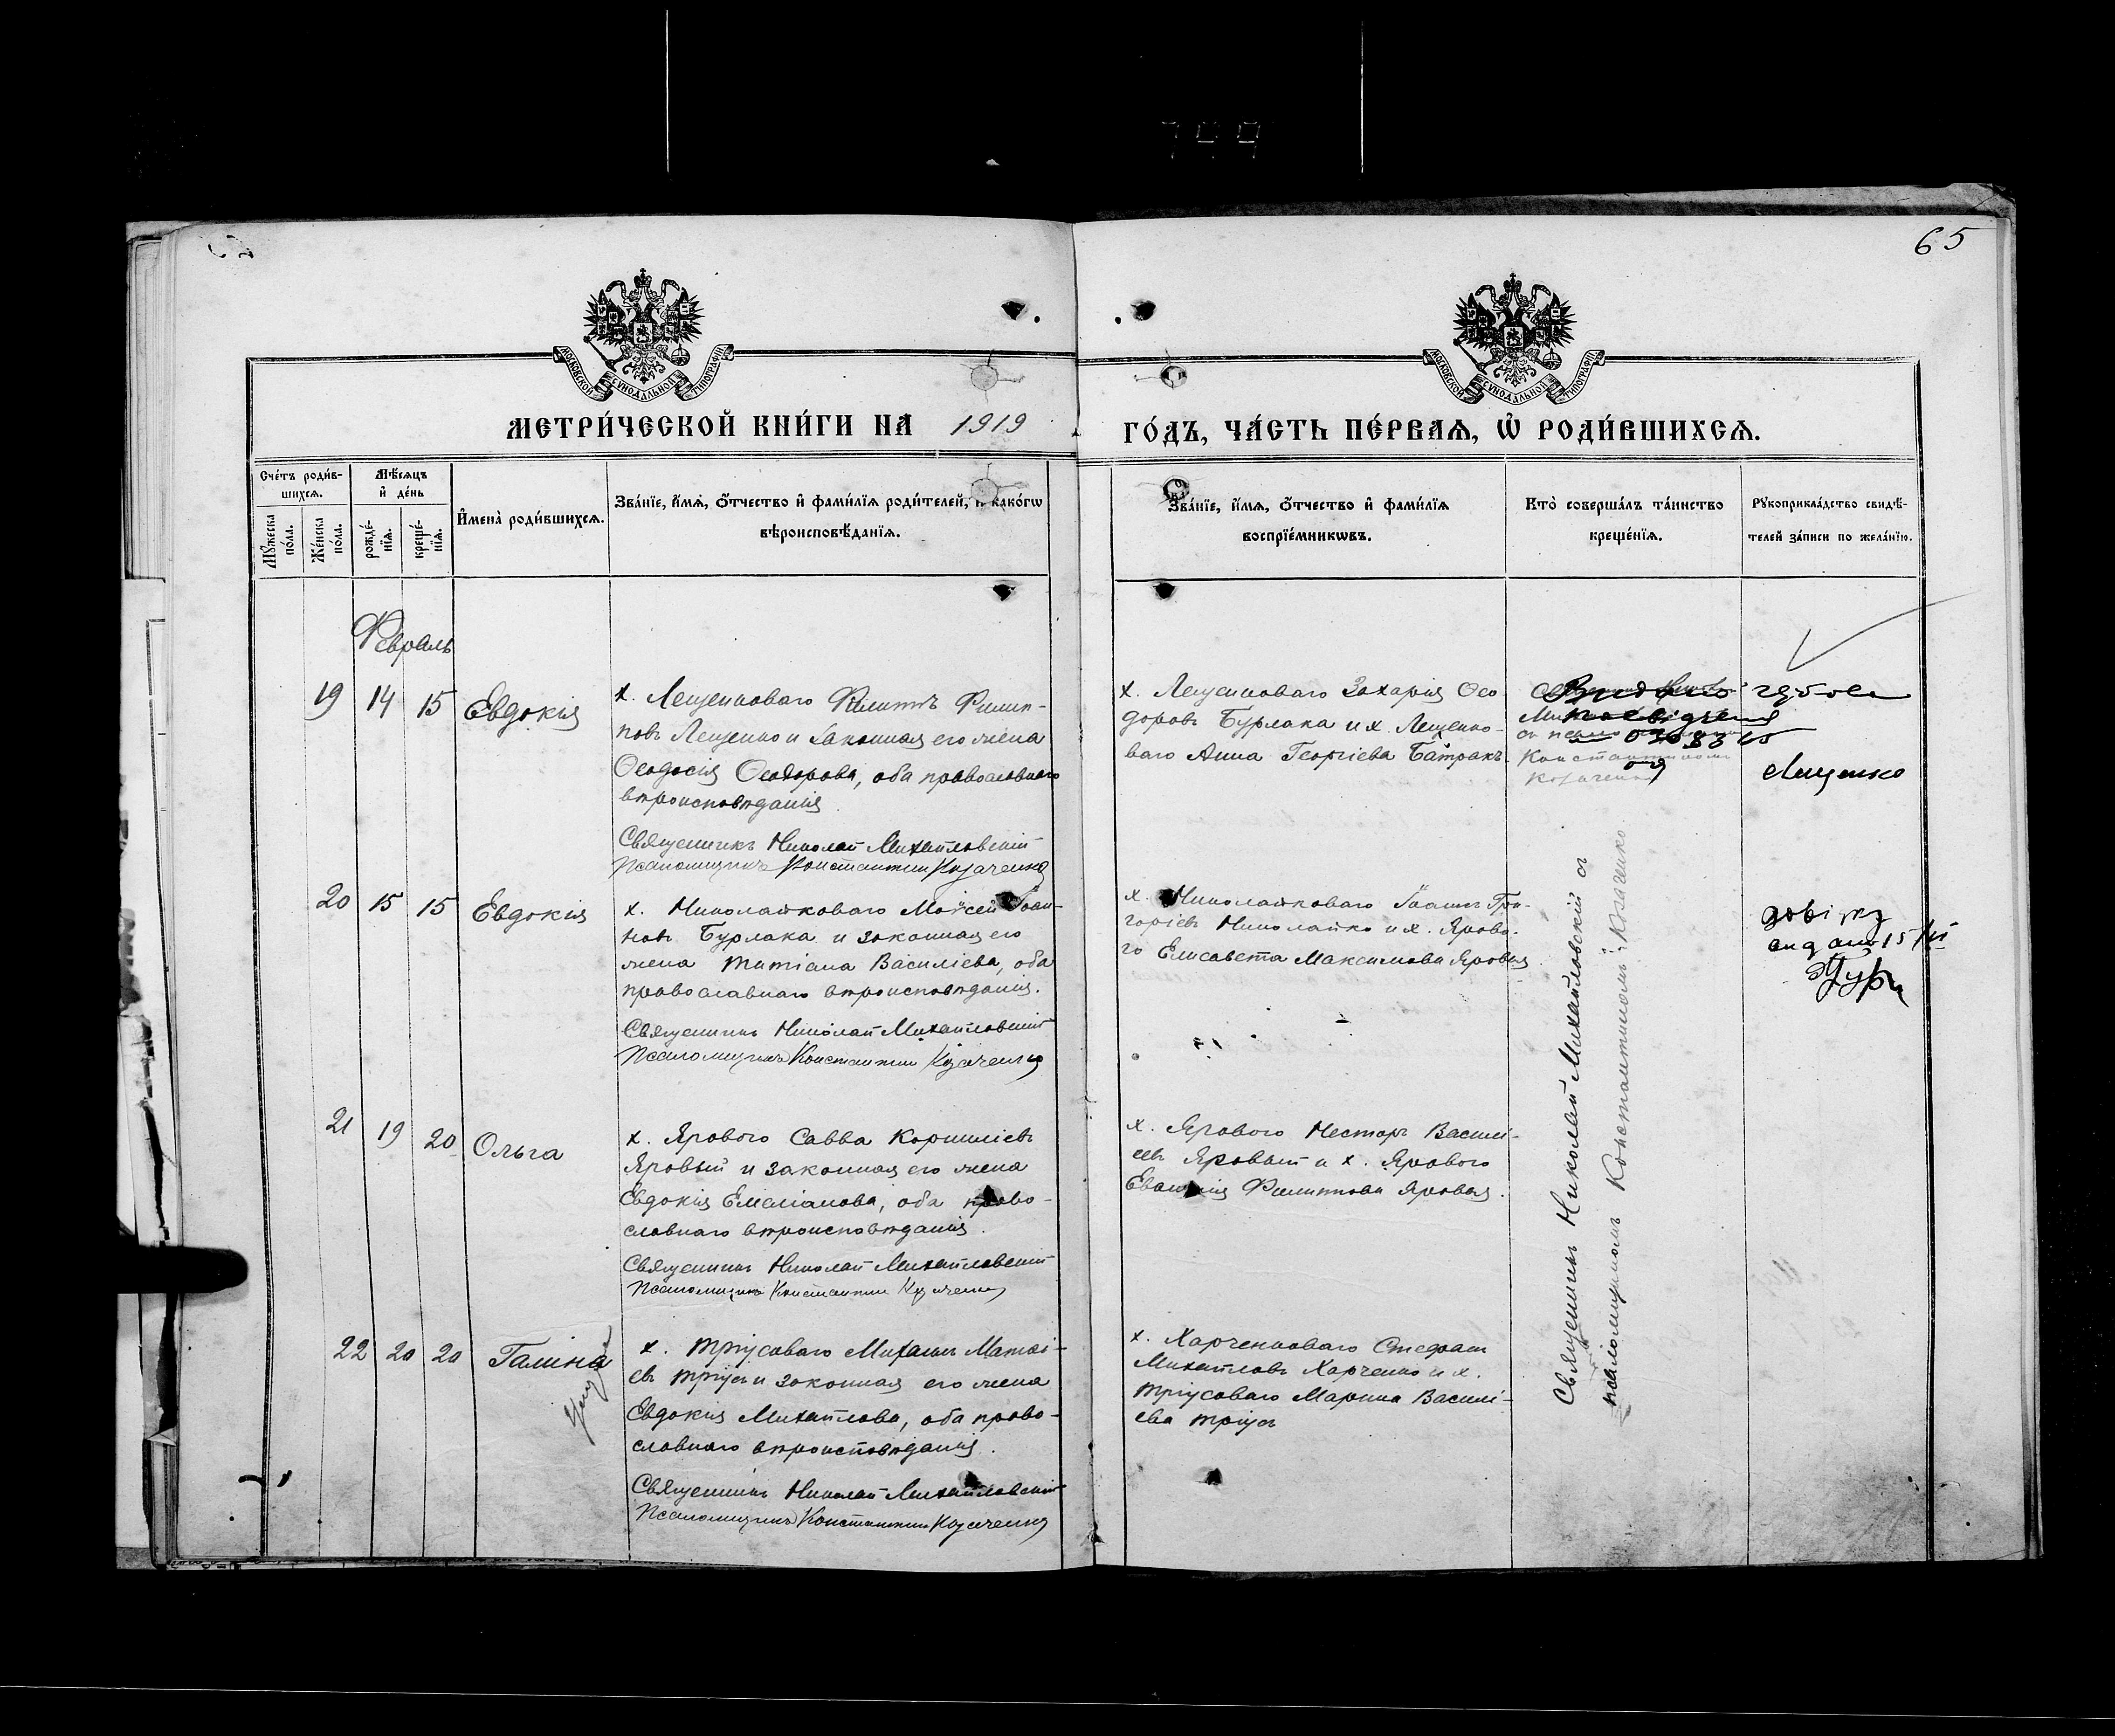 65
МОСКОВСКОЙ СѴНОДАЛЬНОЙ ТИПОГРАФІИ
МОСКОВСКОЙ СѴНОДАЛЬНОЙ ТИПОГРАФІИ
МЕТРИ́ЧЕСКОЙ КНИ́ГИ НА 1919
ГО́ДЪ, ЧА́СТЬ ПЕ́РВАѦ, Ѡ҆ РОДИ́ВШИХСѦ.
Сче́тъ роди́в-
шихсѧ.
Мꙋ́жеска
по́ла.
Же́нска
по́ла.
Мѣ́сѧцъ
и҆ де́нь
рожде́-
нїѧ.
креще́-
нїѧ.
И҆мена̀ роди́вшихсѧ.
Зва́нїе, и҆́мѧ, ѻ҆́тчество и҆ фами́лїѧ роди́телей, и҆ како́гѡ
вѣроисповѣ́данїѧ.
Зва́нїе, и҆́мѧ, ѻ҆́тчество и҆ фами́лїѧ
воспрїе́мникѡвъ.
Кто̀ соверша́лъ та́инство
креще́нїѧ.
Рꙋкоприкла́дство свидѣ́-
телей за́писи по жела́нїю.
Февраль
19 14 15 Евдокія
х. Лещенкового Филиппъ Филип-
повъ Лещенко и законная его жена
Ѳеодосія Ѳеодорова, оба православнаго
вѣроисповѣданія
Священникъ Николай Михайловскій
Псаломщикъ Константин Козаченко
х. Лещенкового Захарія Ѳео-
доровъ Бурлака и х. Лещенко-
ваго Анна Георгіева Батракъ.
Константиномъ
Козаченко
Лещенко
20 15 15 Евдокія
х. Николайковаго Моѵсей Іоан-
новъ Бурлака и законная его
жена Татіана Василіева, оба
православнаго вѣроисповѣданія.
Священникъ Николай Михайловскій
Псаломщикъ Константин Козаченко
х. Николайковаго Іоаннъ Гри-
горіевъ Николайко и х. Ярово-
го Елисавета Максимова Яровая
видано 15/VI
21 19 20 Ольга
х. Ярового Савва Корниліевъ
Яровый и законная его жена
Евдокія Емеліанова, оба право-
славнаго вѣроисповѣданія.
Священникъ Николай Михайловскій
Псаломщикъ Константин Козаченко
х. Ярового Несторъ Василі-
евъ Яровый и х. Ярового
Филиппова Яровая.
22 20 20 Галина
х. Тріусоваго Михаилъ Матѳі-
евъ Тріусъ и законная его жена
Евдокія Михайлова, оба право-
славнаго вѣроисповѣданія.
Священникъ Николай Михайловскій
Псаломщикъ Константин Козаченко
х. Харченковаго Стефанъ
Михайловъ Харченко и х.
Тріусоваго Марина Василі-
ева Тріусъ
Священникъ Николай Михайловскій съ
псаломщикомъ Константиномъ Козаченко